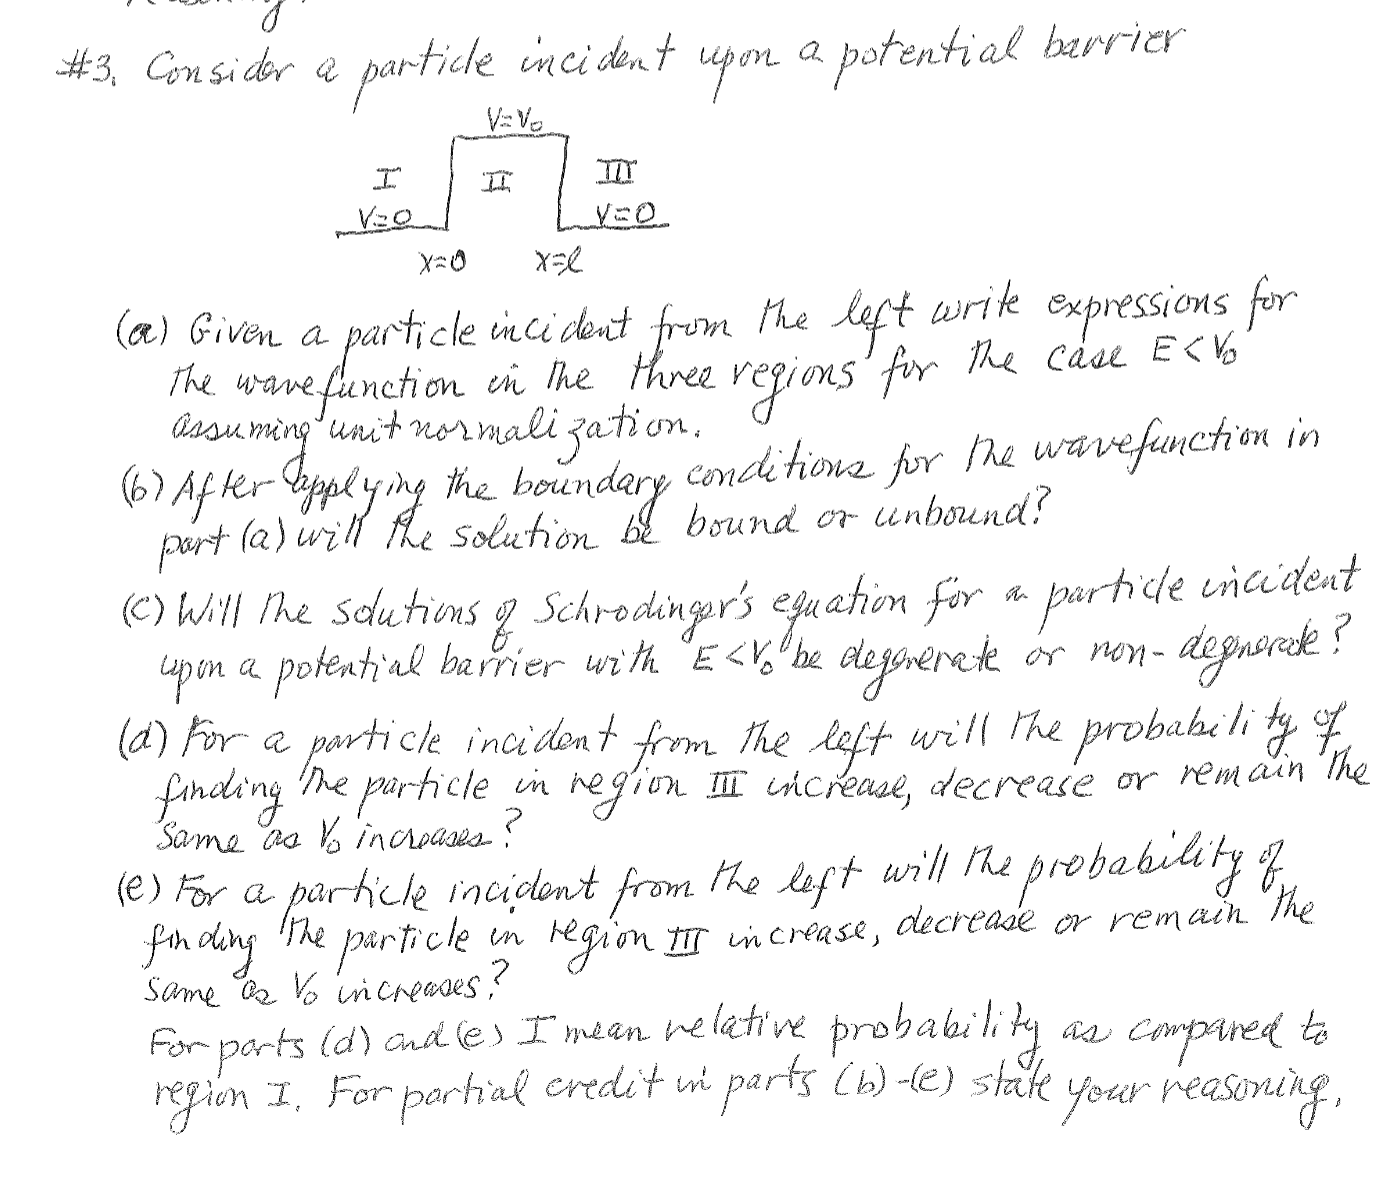 #3. Consider a particle incident upon a potential barrier
V=V₀
I II III
V=0 V=0
x=0 x=l
(a) Given a particle incident from the left write expressions for
the wavefunction in the three regions for the case E<V₀
assuming unit normalization.
(b) After applying the boundary conditions for the wavefunction in
part (a) will the solution be bound or unbound?
(c) Will the solutions of Schrodinger's equation for a particle incident
upon a potential barrier with E<V₀ be degenerate or non-degenerate?
(d) For a particle incident from the left will the probability of
finding the particle in region III increase, decrease or remain the
same as V₀ increases?
(e) For a particle incident from the left will the probability of
finding the particle in region III increase, decrease or remain the
same as V₀ increases?
For parts (d) and (e) I mean relative probability as compared to
region I. For partial credit in parts (b)-(e) state your reasoning.